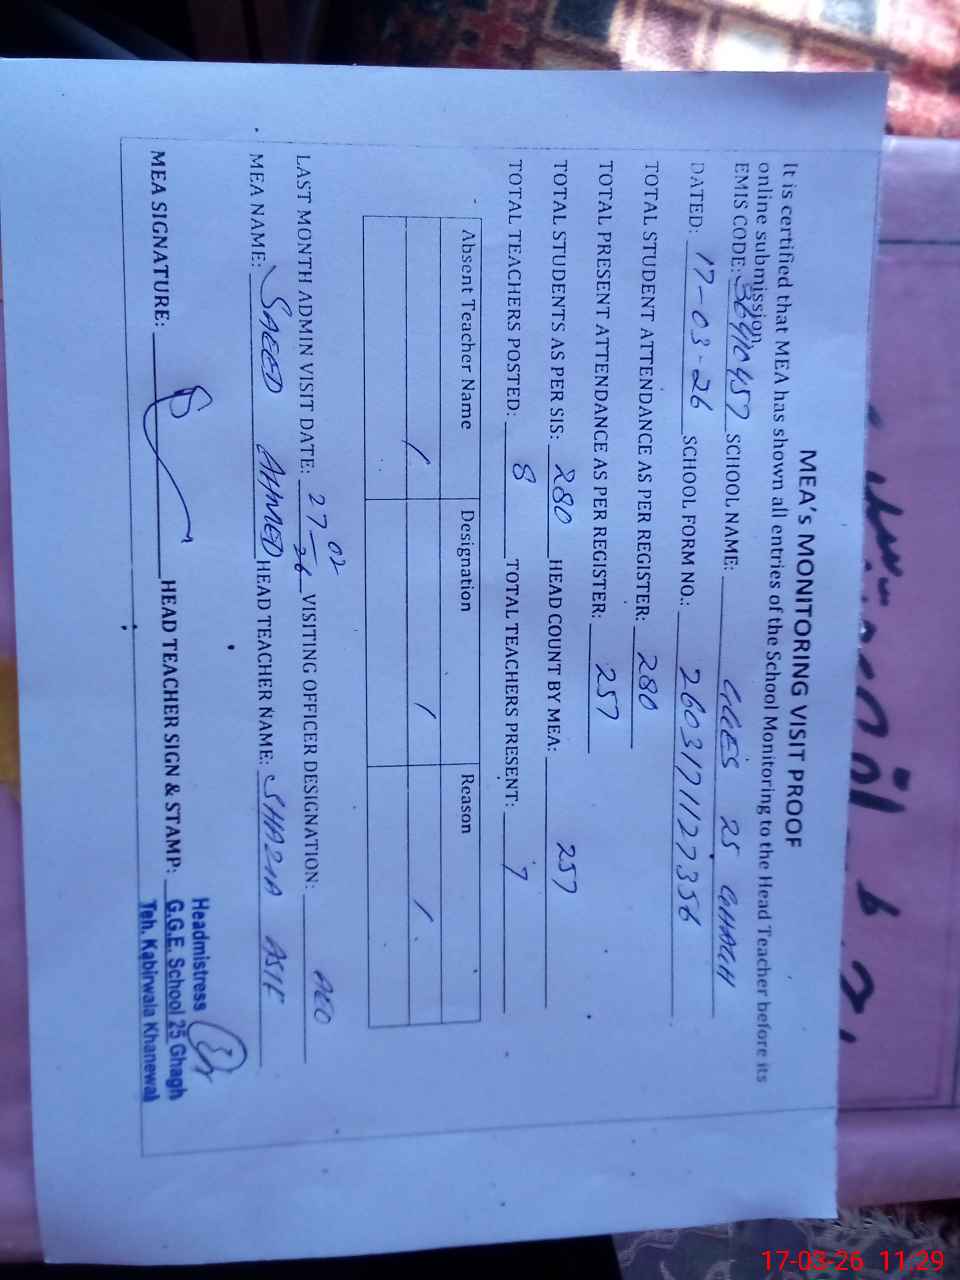 MEA's MONITORING VISIT PROOF
It is certified that MEA has shown all entries of the School Monitoring to the Head Teacher before its
online submission.
EMIS CODE: 36410457 SCHOOL NAME: GGES 25 GHAGH
DATED: 17-03-26 SCHOOL FORM NO.: 2603171127356
TOTAL STUDENT ATTENDANCE AS PER REGISTER: 280
TOTAL PRESENT ATTENDANCE AS PER REGISTER: 257
TOTAL STUDENTS AS PER SIS: 280 HEAD COUNT BY MEA: 257
TOTAL TEACHERS POSTED: 8 TOTAL TEACHERS PRESENT: 7
Absent Teacher Name Designation Reason
/ / /
LAST MONTH ADMIN VISIT DATE: 27-02-26 VISITING OFFICER DESIGNATION: AEO
MEA NAME: SAEED AHMED HEAD TEACHER NAME: SHAZIA ASIF
MEA SIGNATURE: HEAD TEACHER SIGN & STAMP:
Headmistress
G.G.E. School 25 Ghagh
Teh. Kabirwala Khanewal
17-03-26 11:29